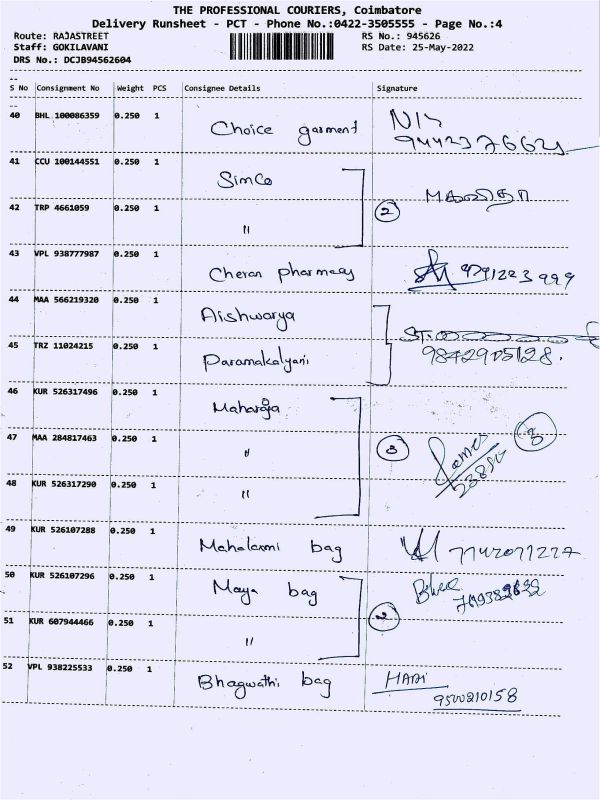 THE PROFESSIONAL COURIERS, Coimbatore
Delivery Runsheet - PCT - Phone No.:0422-3505555 - Page No.:4
Route: RAJASTREET RS No.: 945626
Staff: GOKILAVANI RS Date: 25-May-2022
DRS No.: DCJB94562604
S No Consignment No Weight PCS Consignee Details Signature
40 BHL 100086359 0.250 1 Choice garment
41 CCU 100144551 0.250 1 Simco
42 TRP 4661059 0.250 1 " 2
43 VPL 938777987 0.250 1 Cheran pharmacy
44 MAA 566219320 0.250 1 Aishwarya
45 TRZ 11024215 0.250 1 Paramakalyani 9842905128.
46 KUR 526317496 0.250 1 Maharaja
47 MAA 284817463 0.250 1 " 3 3
48 KUR 526317290 0.250 1 "
49 KUR 526107288 0.250 1 Mahalaxmi bag
50 KUR 526107296 0.250 1 Maya bag
51 KUR 607944466 0.250 1 " 2
52 VPL 938225533 0.250 1 Bhagwathi bag HARI
9500210158